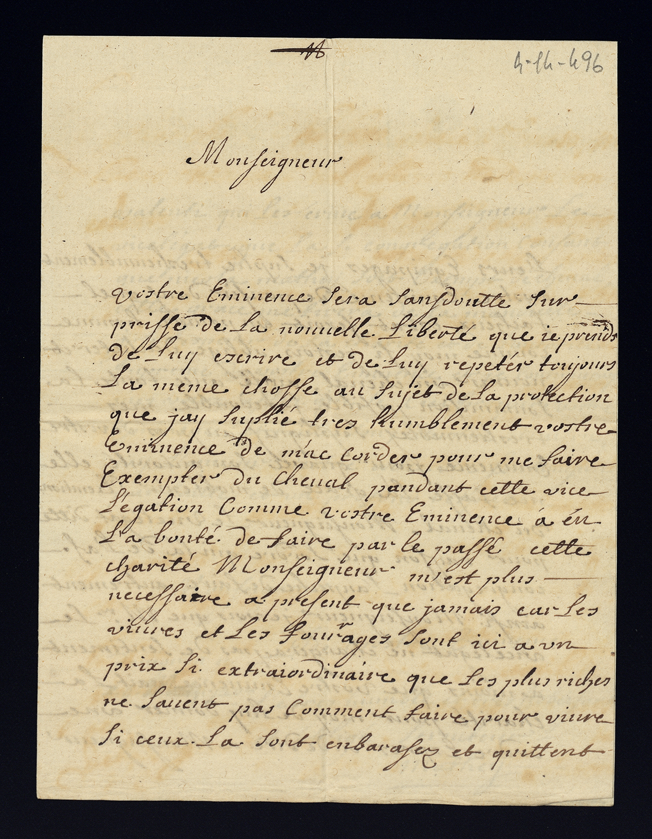 4-14-496
Monseigneur
vostre Eminence sera sansdoutte sur
prisse de La nouvelle Liberté que ie prends
de Luy escrire et de Luy repetér toujours
La meme chosse au sujet de La protection
que jay suplié tres humblement vostre
Eminence de m'ac corder pour me faire
Exempter du cheval pandant cette vice
Légation Comme vostre Eminence á éu
La bonté de faire par le passé cette
charité Monseigneur m'est plus
necessaire a present que jamais car Les
vivres et Les fourages sont ici a vn
prix si extraordinaire que Les plus riches
ne sauent pas Comment faire pour viure
si ceux La sont enbarasez et quittent